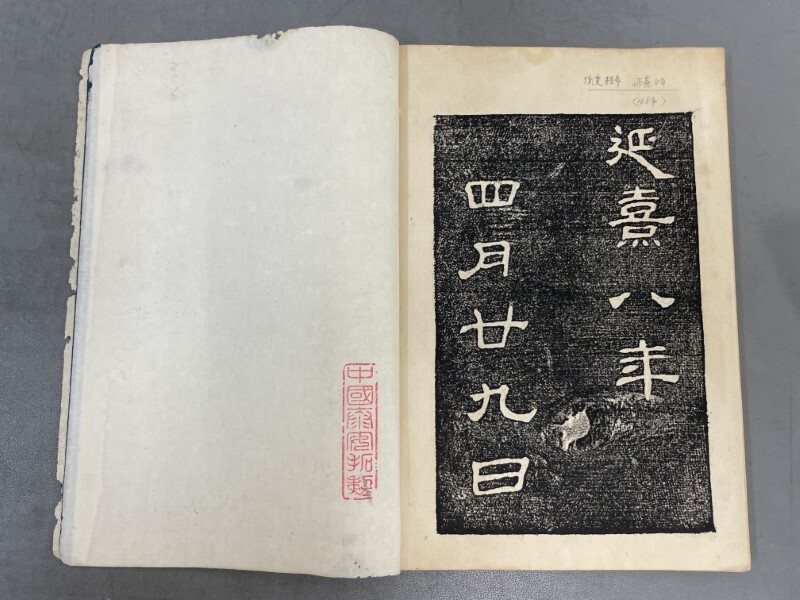 延熹八年
四月廿九日
中國泰安拓製